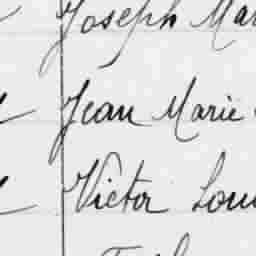 Joseph Mar
Jean Marie
Victor Loui